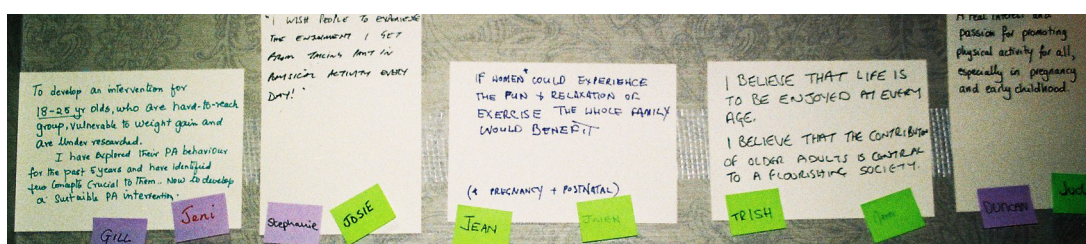 To develop an intervention for
18-25 yr olds, who are hard-to-reach
group, vulnerable to weight gain and
are under researched.
I have explored their PA behaviour
for the past 5 years and have identified
few concepts crucial to them.. Now to develop
a suitable PA intervention.
GILL
Jeni
"I WISH PEOPLE TO EXPERIENCE
THE ENJOYMENT I GET
FROM TAKING PART IN
PHYSICAL ACTIVITY EVERY
DAY!"
Stephanie
JOSIE
IF WOMEN* COULD EXPERIENCE
THE FUN + RELAXATION OF
EXERCISE THE WHOLE FAMILY
WOULD BENEFIT
(* PREGNANCY + POSTNATAL)
JEAN
I BELIEVE THAT LIFE IS
TO BE ENJOYED AT EVERY
AGE.
I BELIEVE THAT THE CONTRIBUTION
OF OLDER ADULTS IS CENTRAL
TO A FLOURISHING SOCIETY.
TRISH
A real interest and
passion for promoting
physical activity for all,
especially in pregnancy
and early childhood.
DUNCAN